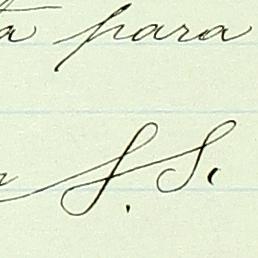 para
S. S.